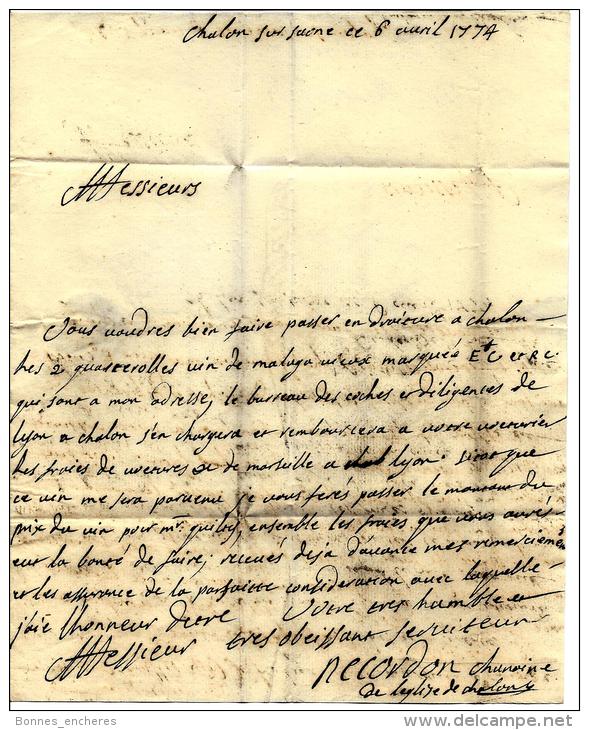 Chalon sur saone ce 6 avril 1774
Messieurs
Vous voudres bien faire passer en droiture a chalon
les 2 quarterolles vin de malaga vieux marquée E+C et RC.
qui sont a mon adresse, le bureau des coches et diligences de
lyon a chalon s'en chargera et remboursera a votre voiturier
les fraies de voitures de marseille a lyon. sitot que
ce vin me sera parvenu je vous ferés passer le montant du
prix du vin pour mr. ensemble les fraies que vous aurés
eut la bonté de faire; recevés deja d'avance mes remerciemens
et les assurance de la parfaitte consideration avec laquelle
j'aie l'honneur d'etre Votre tres humble et
Messieur tres obeissant serviteur
Recordon chanoine
de l'eglise de chalon
Bonnes_encheres
www.delcampe.net